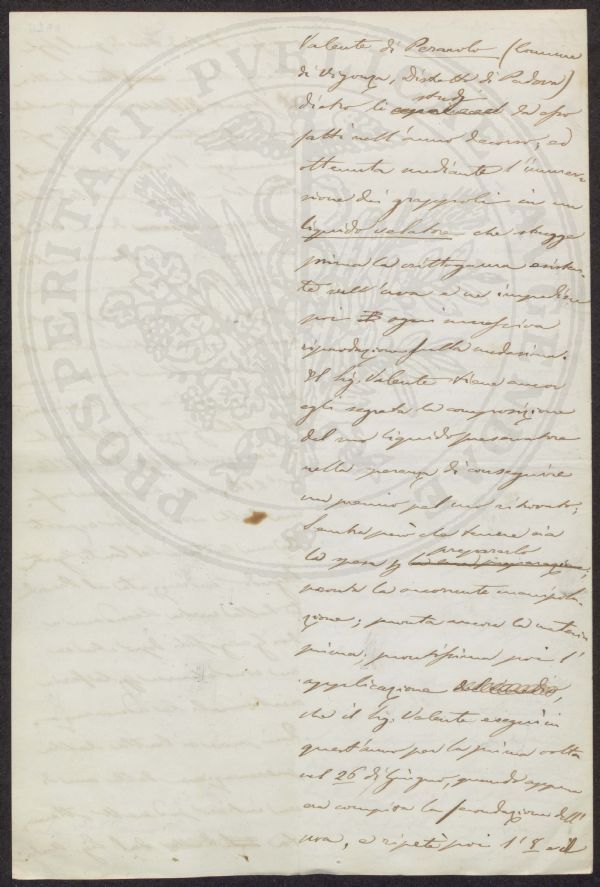 Valente di Peraolo (Comune
di Vigonza, Distretto di Padova)
dietro li studj da esso
fatti nell'anno decorso, ed
ottenuta mediante l'immer-
sione dei grappoli in un
liquido velatore che strugge
prima la crittogama esisten-
te nell'uva e ne impedisce
poi ogni successiva
riproduzione sulla medesima.
Il Sig. Valente tiene ancor
egli segreta la composizione
del suo liquido preservatore
nella speranza di conseguire
un premio pel suo ritrovato;
sembra però che tenue sia
la spesa p prepararlo;
poca la occorrente manipola-
zione; poca ancora la materia
prima; prontissima poi l'
applicazione
che il Sig. Valente eseguì in
quest'anno per la prima volta
nel 26 di Giugno, quando appena
era compita la fecondazione dell'
uva, e ripetè poi l' 8 ed il
PROSPERITATI PVBLICAE AVGENDAE